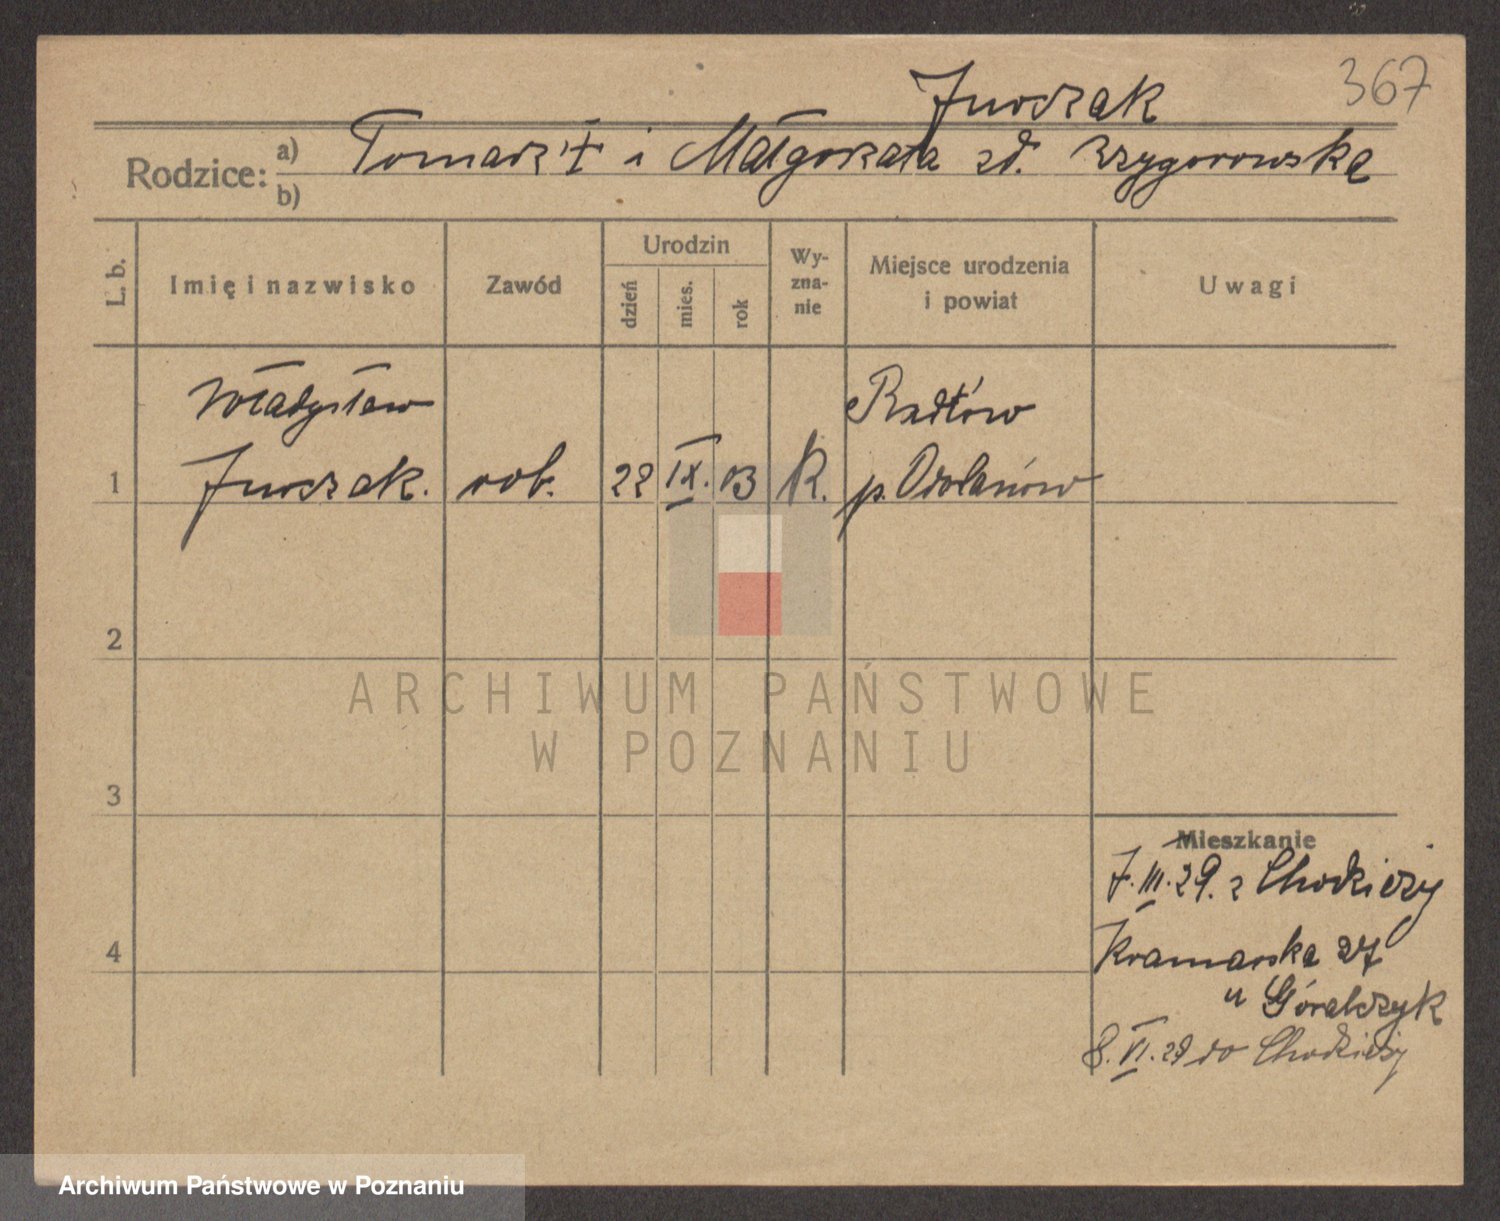 367
Jurczak
Rodzice: a) Tomasz + i Małgorzata zd.
b)
L. b.
Imię i nazwisko
Zawód
Urodzin
dzień
mies.
rok
Wy-
zna-
nie
Miejsce urodzenia
i powiat
Uwagi
Władysław
Radłów
1 Jurczak. rob. 22 IX. 03 R. p. Odolanów
2
3
4
Mieszkanie
7.III.29. z Chodzieży
Kramarska 27
u Góralczyk
8.VI.29 do Chodzieży
ARCHIWUM PAŃSTWOWE
W POZNANIU
Archiwum Państwowe w Poznaniu